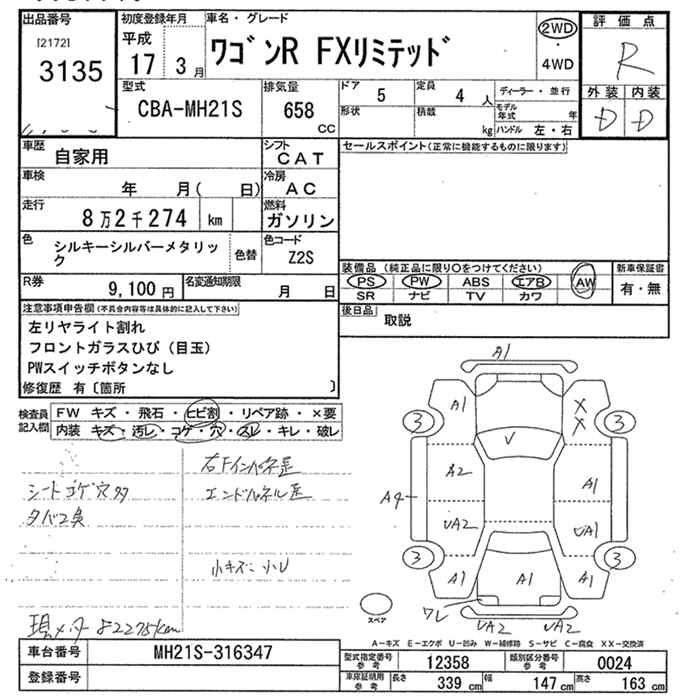 出品番号
[2172]
3135
初度登録年月
平成
17 3月
車名・グレード
ワゴンR FXリミテッド
2WD
・
4WD
評価点
R
外装 内装
D D
型式
CBA-MH21S
排気量
658
CC
ドア 5
定員 4 人
ディーラー・並行
形状
積載
kg
モデル年式 年
ハンドル 左・右
車歴
自家用
シフト
CAT
セールスポイント(正常に機能するものに限ります)
車検
年 月( 日)
冷房
AC
走行
8万2千274 km
燃料
ガソリン
色
シルキーシルバーメタリック
色替
色コード
Z2S
装備品(純正品に限り○をつけてください)
PS PW ABS エアB AW
SR ナビ TV カワ
新車保証書
有・無
R券
9,100円
名変通知期限
月 日
後日品
取説
注意事項申告欄(不具合内容等は具体的に記入して下さい)
左リヤライト割れ
フロントガラスひび(目玉)
PWスイッチボタンなし
修復歴 有〔箇所 〕
検査員
記入欄
FW キズ・飛石・ヒビ割・リペア跡・×要
内装 キズ・汚レ・コゲ・穴・スレ・キレ・破レ
シートコゲ穴多
タバコ臭
右Fインパネ歪
エンドパネル歪
小キズ・小U
現メーター 82275km
A1
A1
X
X
3
3
V
A2
A1
A4
UA2
UA1
3
3
A1
A1
A1
ワレ
UA2
UA2
スペア
A-キズ E-エクボ U-凹み W-補修跡 S-サビ C-腐食 XX-交換済
車台番号
MH21S-316347
型式指定番号
参考
12358
類別区分番号
参考
0024
登録番号
車庫証明用
参考
長さ 339 cm
幅 147 cm
高さ 163 cm